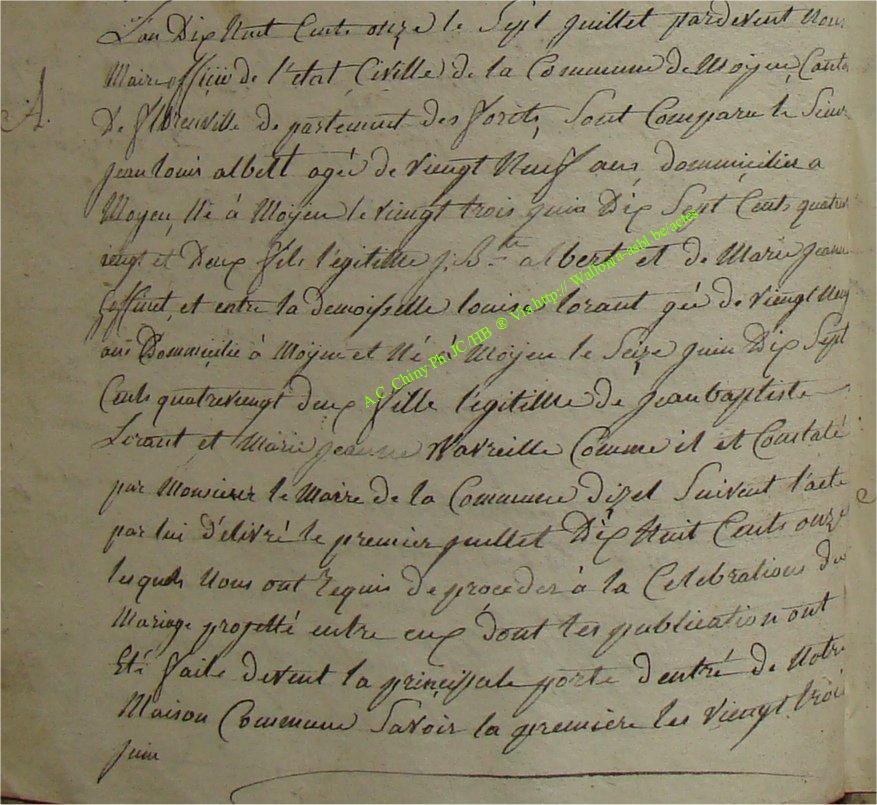 L'an Dix huit Cents onze le Sept juillet pardevent Nous
Maire officié de l'état Civille de la Commune de Moyen Canton
A.
De florenville departement des forêts, Sont Comparu le Sieur
jean louis albert agée de viengt Neuf ans dommicilier a
Moyen, Né à Moyen le viengt trois juin Dix Sept Cents quatre
viengt et Deux fils légitime j. B.te albert et de Marie jeanne
Goffinet, et entre la demoiselle louise lorant gée de viengt Neuf
ans Dommicilié à Moyen et Né à Moyen le Seize juin Dix Sept
Cents quatreviengt deux fille légitime de jean baptiste
Lorant et Marie jeanne Wavreille Comme il et Constaté
par Monsieur le Maire de la Commune dizel Suivent l'acte
par lui délivré le premier juillet Dix huit Cents onze
lesquels Nous ont Requis de proceder à la Celebrations du
Mariage projetté entre eux dont les publication ont
Eté faite devent la principale porte d'entré de Notre
Maison Commune Savoir la première les viengt trois
juin
A.C. Chiny Ph. JC/HB ® Via http:// Wallonia-asbl.be/actes